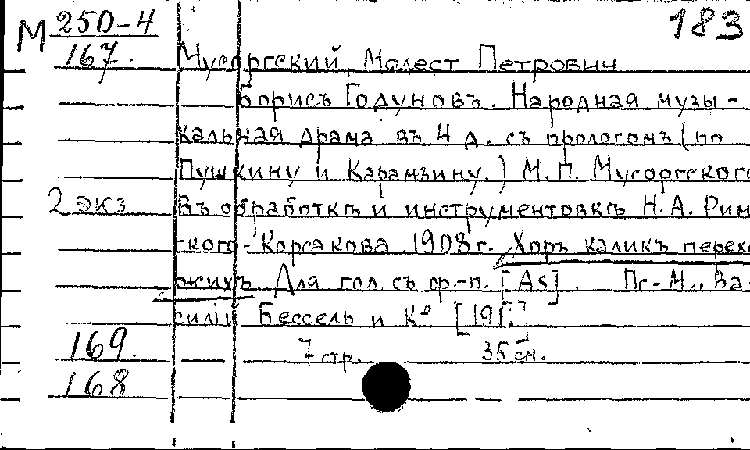 М 250-4 183
167. Мусоргский, Модест Петрович
Борисъ Годуновъ. Народная музы-
кальная драма въ 4 д. съ прологомъ (по
Пушкину и Карамзину.) М. П. Мусоргского
2 экз Въ обработкѣ и инструментовкѣ Н. А. Рим
ского-Корсакова 1908г. Хоръ каликъ перехо
жихъ Для гол. съ ф-п. [As] Пг.-М., Ва-
силий Бессель и Ко
169 7 стр. 35 см.
168